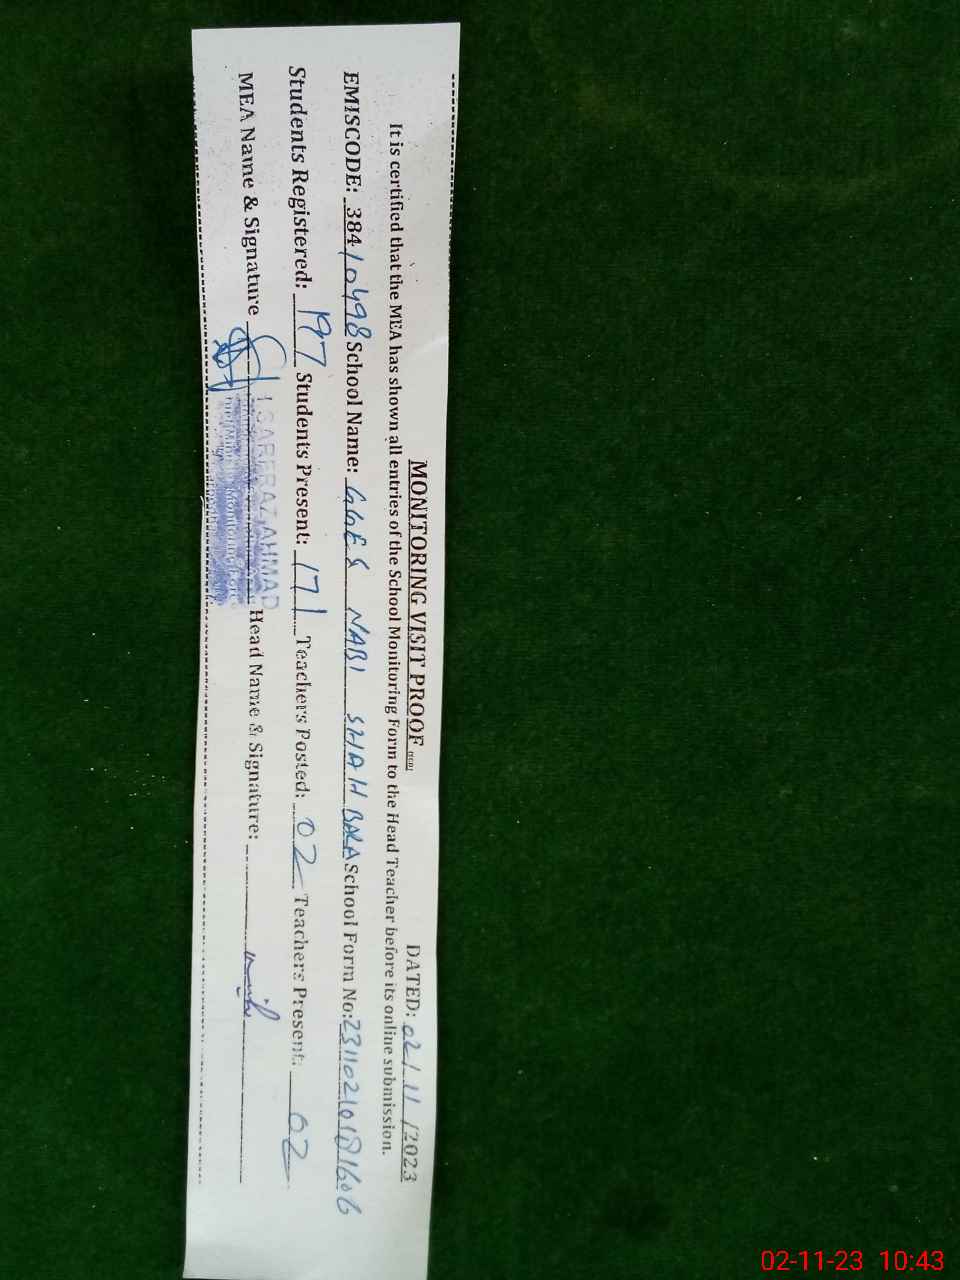 MONITORING VISIT PROOF DATED: 02/11/2023
It is certified that the MEA has shown all entries of the School Monitoring Form to the Head Teacher before its online submission.
EMISCODE: 38410498 School Name: GGES NABI SHAH BALA School Form No: 
Students Registered: 197 Students Present: 171 Teachers Posted: 02 Teachers Present: 02
MEA Name & Signature Head Name & Signature:
SARFRAZ AHMAD
02-11-23 10:43